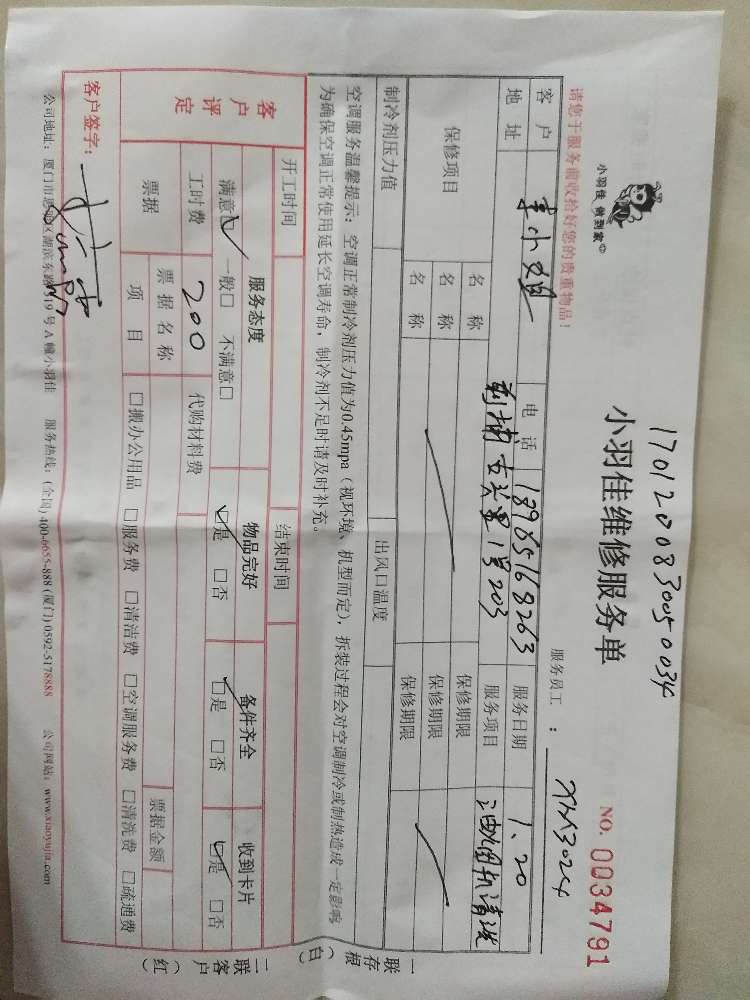 170120083050034
小羽佳 做到家
小羽佳维修服务单
NO. 0034791
请您于服务前收拾好您的贵重物品!
服务员工 : XMX3024
客户 李小姐 电话 18965168263 服务日期 1.20
地址 前埔古兴里1号203 服务项目 油烟机清洗
保修项目 名称 保修期限
名称 保修期限
名称 保修期限
制冷剂压力值 出风口温度
空调服务温馨提示: 空调正常制冷剂压力值为0.45mpa(视环境、机型而定), 拆装过程会对空调制冷或制热造成一定影响
为确保空调正常使用延长空调寿命, 制冷剂不足时请及时补充。
开工时间 结束时间
客户评定 服务态度 物品完好 备件齐全 收到卡片
满意☑ 一般□ 不满意□ ☑是 □否 ☑是 □否 ☑是 □否
工时费 200 代购材料费
票据 票据名称 票据金额
项目 □搬办公用品 □服务费 □清洁费 □空调服务费 □清洗费 □疏通费
客户签字:
公司地址: 厦门市思明区湖滨东路319号A幢小羽佳 服务热线: (全国) 400-6655-888 (厦门) 0592-5178888 公司网站: www.xiaoyujia.com
一联存根(白)
二联客户(红)